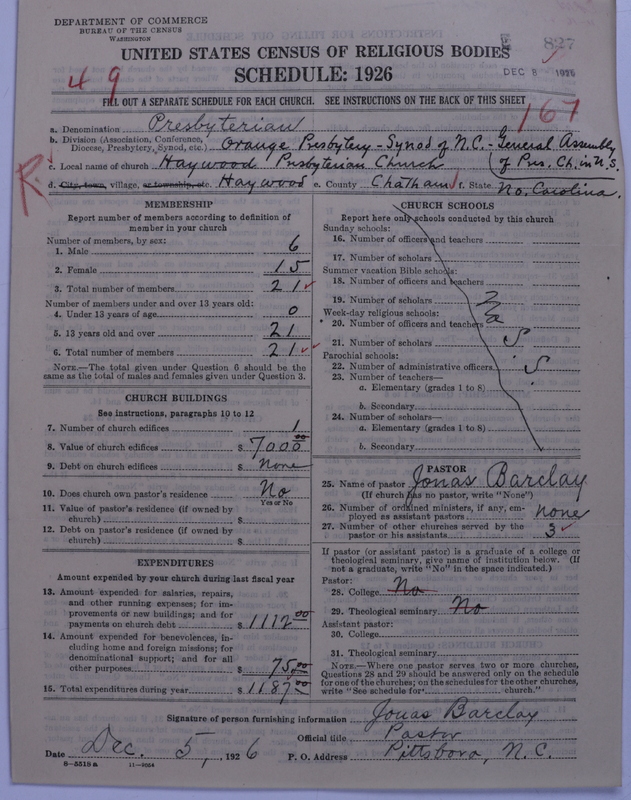 DEPARTMENT OF COMMERCE
BUREAU OF THE CENSUS
WASHINGTON
827
UNITED STATES CENSUS OF RELIGIOUS BODIES
SCHEDULE: 1926
DEC 8 1926
49
FILL OUT A SEPARATE SCHEDULE FOR EACH CHURCH. SEE INSTRUCTIONS ON THE BACK OF THIS SHEET
167
a. Denomination Presbyterian
b. Division (Association, Conference, Diocese, Presbytery, Synod, etc.) Orange Presbytery - Synod of N.C. - General Assembly
of Pres. Ch. in U.S.
R
c. Local name of church Haywood Presbyterian Church
d. City, town, village, or township, etc. Haywood e. County Chatham f. State No. Carolina.
MEMBERSHIP
Report number of members according to definition of
member in your church
Number of members, by sex:
1. Male 6
2. Female 15
3. Total number of members 21
Number of members under and over 13 years old:
4. Under 13 years of age 0
5. 13 years old and over 21
6. Total number of members 21
NOTE.—The total given under Question 6 should be the
same as the total of males and females given under Question 3.
CHURCH BUILDINGS
See instructions, paragraphs 10 to 12
7. Number of church edifices 1
8. Value of church edifices $ 7000 00
9. Debt on church edifices $ none
10. Does church own pastor's residence No
Yes or No
11. Value of pastor's residence (if owned by
church) $
12. Debt on pastor's residence (if owned by
church) $
EXPENDITURES
Amount expended by your church during last fiscal year
13. Amount expended for salaries, repairs,
and other running expenses; for im-
provements or new buildings; and for
payments on church debt $ 1112 00
14. Amount expended for benevolences, in-
cluding home and foreign missions; for
denominational support; and for all
other purposes $ 75.00
15. Total expenditures during year $ 1187 00
CHURCH SCHOOLS
Report here only schools conducted by this church
Sunday schools:
16. Number of officers and teachers
17. Number of scholars
Summer vacation Bible schools:
18. Number of officers and teachers
19. Number of scholars
Week-day religious schools:
20. Number of officers and teachers
21. Number of scholars
Parochial schools:
22. Number of administrative officers
23. Number of teachers—
a. Elementary (grades 1 to 8)
b. Secondary
24. Number of scholars—
a. Elementary (grades 1 to 8)
b. Secondary
PASTOR
25. Name of pastor Jonas Barclay
(If church has no pastor, write "None")
26. Number of ordained ministers, if any, em-
ployed as assistant pastors none
27. Number of other churches served by the
pastor or his assistants 3
If pastor (or assistant pastor) is a graduate of a college or
theological seminary, give name of institution below. (If
not a graduate, write "No" in the space indicated.)
Pastor:
28. College No
29. Theological seminary No
Assistant pastor:
30. College
31. Theological seminary
NOTE.—Where one pastor serves two or more churches,
Questions 28 and 29 should be answered only on the schedule
for one of the churches; on the schedules for the other churches,
write "See schedule for church."
Signature of person furnishing information Jonas Barclay
Official title Pastor
Date Dec. 5, 1926 P. O. Address Pittsboro, N. C.
8-5518a 11-9054